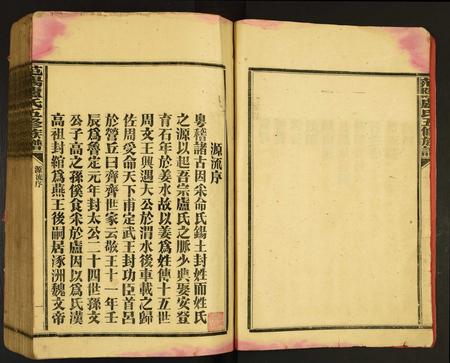 范陽盧氏五修族譜
源流序
粵稽諸古因采命氏錫土封姓而姓氏
之源以起吾宗盧氏之脈少典娶安登
育石年於姜水故以姜爲姓傳十五世
周文王興遇太公於渭水後車載之歸
佐周受命天下甫定武王封功臣首呂
於營丘曰齊齊世家云敬王十一年壬
辰爲魯定元年封太公二十四世孫文
公子高之孫傒食釆於盧因以爲氏漢
高祖封綰爲燕王後嗣居涿洲魏文帝
范陽盧氏五修族譜
源流序